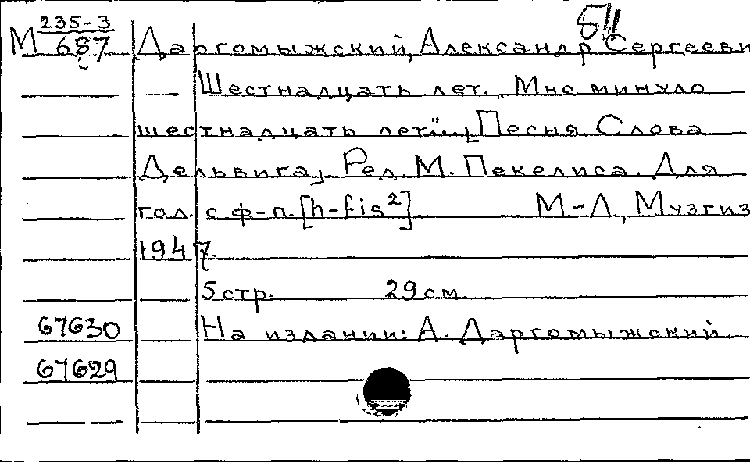 235-3 511
М 687 Даргомыжский, Александр Сергееви
Шестнадцать лет. „Мне минуло
шестнадцать лет"... [Песня. Слова
Дельвига]. Ред. М. Пекелиса. Для
гол. с ф-п. [h-fis²] М-Л, Музгиз
1947.
5 стр. 29 см.
67630 На издании: А. Даргомыжский
67629